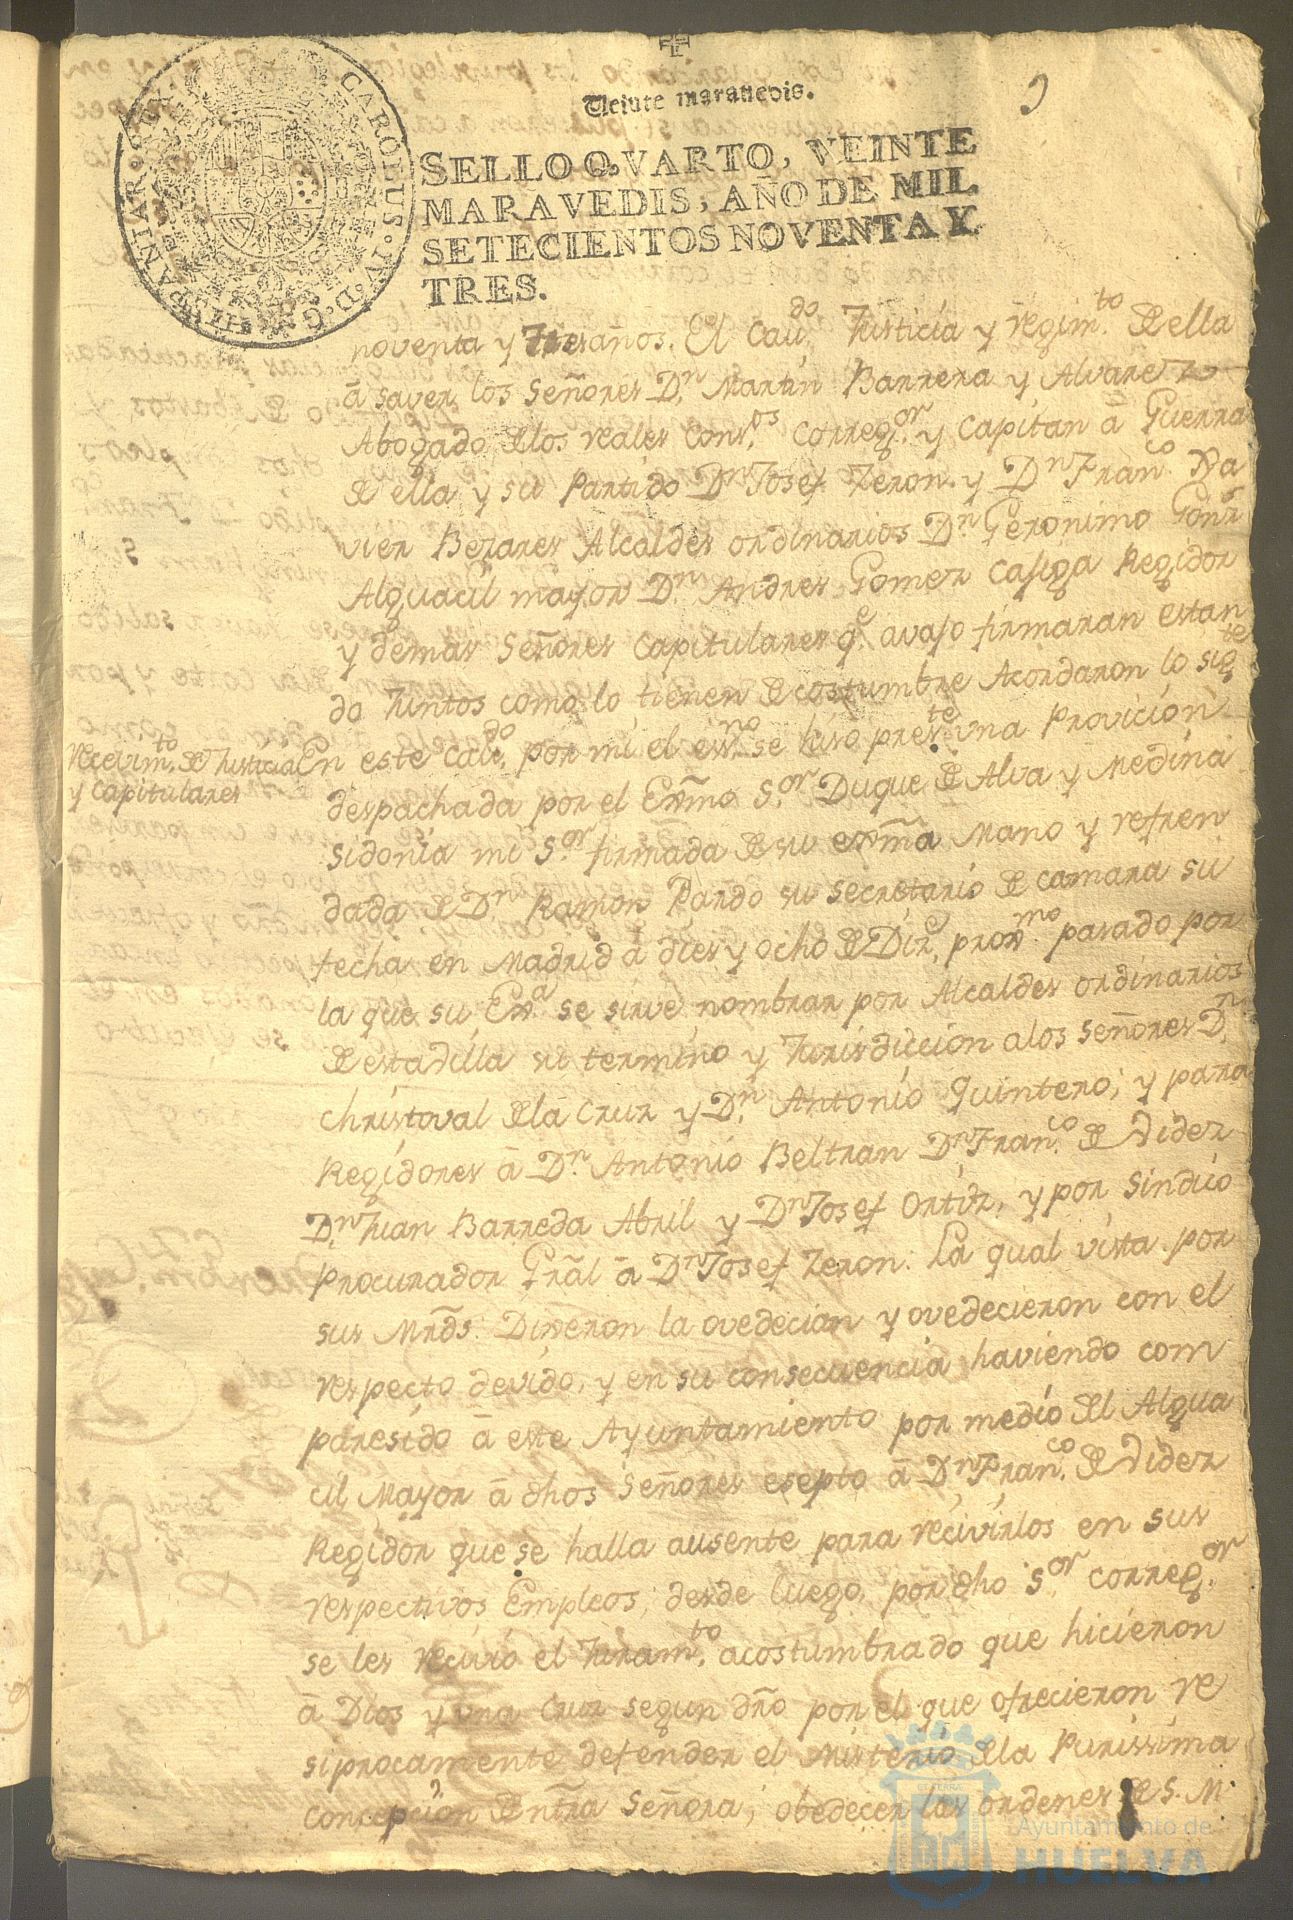 Veinte maravedis.
SELLO QVARTO, VEINTE
MARAVEDIS, AÑO DE MIL
SETECIENTOS NOVENTA Y
TRES.
CAROLUS·IV·D·G·HISPANIAR·REX·
noventa y tres años. El Cav.do Justicia y regim.to de ella
â saver los Señores D.n Martin Barrera y Alvarez
Abogado de los reales Cons.os Correg.or y Capitan â Guerra
de ella y su Partido D.n Josef Zeron y D.n Fran.co Xa
vier Bezares Alcaldes ordinarios D.n Geronimo Gonz.
Alguacil mayor D.n Andres Gomez Regidor
y demas Señores Capitulares q.e avajo firmaran estan
do Juntos como lo tienen de costumbre Acordaron lo sig.te
Recevim.to de Justicia
y Capitulares
En este Cav.do por mi el ess.no se hiso pres.te una Provicion
despachada por el Exmo S.or Duque de Alva y Medina
sidonia mi S.or firmada de su exma Mano y refren
dada de D.n Ramon Pardo su secretario de camara su
fecha en Madrid â dies y ocho de Diz.e prox.mo pasado por
la que su Ex.a se sirve nombrar por Alcaldes ordinarios
de esta villa su termino y Jurisdiccion a los Señores D.n
Christoval de la Cruz y D.n Antonio Quintero; y para
Regidores â D.n Antonio Beltran D.n Fran.co de Videz
D.n Juan Barreda Abril y D.n Josef Ortiz, y por Sindico
Procurador Gral â D.n Josef Zeron. La qual vista por
sus Mrds. Dixeron la ovedecian y ovedecieron con el
respecto devido, y en su consecuencia haviendo com
paresido â este Ayuntamiento por medio del Algua
cil Mayor â dhos Señores esepto â D.n Fran.co de Videz
Regidor que se halla ausente para recivirlos en sus
respectivos Empleos, desde luego, por dho S.or Correg.or
se les recivió el Juram.to acostumbrado que hicieron
â Dios y una Cruz segun dro por el que ofrecieron re
siprocamente defender el Misterio de la Purissima
Concepcion de ntra Señora, obedecer las ordenes de S. M.
Ayuntamiento de
HUELVA